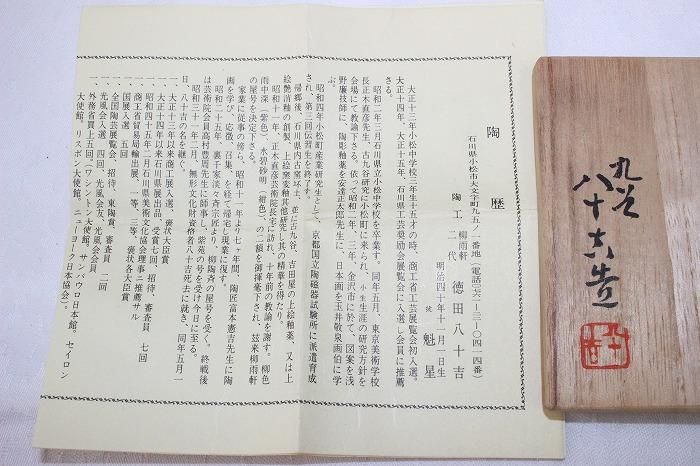 陶歴
石川県小松市大文字町九五ノ一番地（電話〇七六一－二一－〇四一四番）
陶工 二代 柳雨軒 徳田八十吉
号 魁星
明治四十年十一月一日生
大正十三年小松中学校三年生十五才の時、商工省工芸展覧会初入選。
大正十四年、大正十五年、石川県工芸奨励会展覧会に入選し会員に推薦
さる。
昭和二年三月石川県立小松中学校を卒業す。同年五月、東京美術学校
長正木直彦先生、古九谷研究に小松町に来られ、小生生涯の研究方針を
会場にて教諭下さる。依って昭和二年、三年、金沢市に於て、図案を浅
野廉技師に、陶彫釉薬を安達正太郎先生に、日本画を玉井敬泉画伯に学
ぶ。
昭和四年小松町産業研究生として、京都国立陶磁器試験所に派遣育成
され、第三回伝習生を終了す。
帰郷後、石川県内古窯坏土、並に古九谷、吉田屋の上絵釉薬、又は上
絵艶消釉の創製、上絵窯変釉其他研究し其の精華を得たり。
昭和十一年、正木直彦芸術院長宅に訪れ、十年前の教諭を謝す。柳色
雨中深（紫色）、水碧砂明（紺色）、の二額を御揮毫下され、玆来柳雨軒
の屋号を決定さる。
家業に従事の傍ら、昭和十一年より七ヶ年間、陶匠富本憲吉先生に陶
画を学び、応徴、召集、を経て帰宅し現業に復す。
昭和二十五年、裏千家淡々斉宗匠より、柳陶斉の屋号を受く。終戦後
は芸術院会員高村豊周先生に師事し、紫苑の号を受け今日に至る。
昭和三十一年二月、無形文化財資格者八十吉死去に就き、同年五月一
日、八十吉の名を継ぐ。
一、大正十三年以来商工展入選、褒状大臣賞
一、大正十四年以来石川県展出品、受賞七回、招待、審査員 七回
一、昭和四十五年二月石川県美術文化協会理事ニ推薦サル
一、商工省貿易局輸出展、一等、三等、褒状各大臣賞
一、国展入選 五回
一、全国陶芸展覧会、招待、東陶賞、審査員 二回
一、光風会入選 四回、光風会会友、光風会会員
一、外務省買上五回（ワシントン大使館、サンパウロ日本館。セイロン
大使館。リスボン大使館、ニューヨーク日本協会）。
九谷
八十吉造